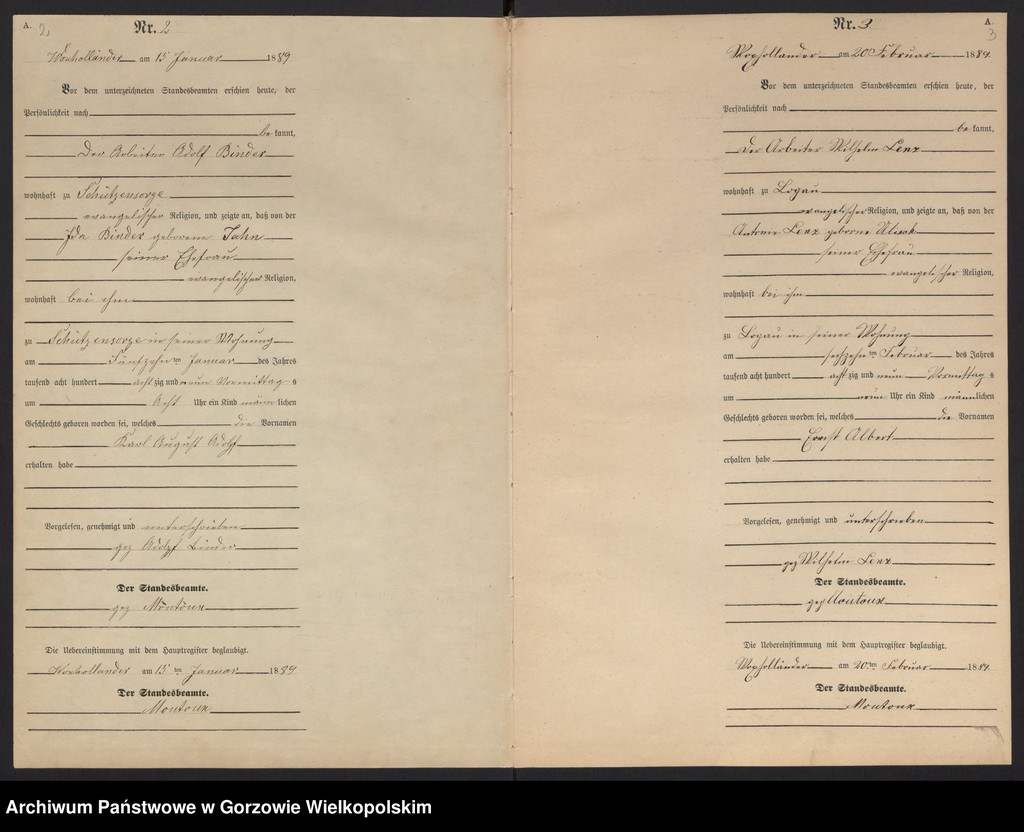 A.
2
Nr. 2
Woxholländer am 15 Januar 1889
Vor dem unterzeichneten Standesbeamten erschien heute, der
Persönlichkeit nach
be kannt,
Der Arbeiter Adolf Binder
wohnhaft zu Schützensorge
evangelischer Religion, und zeigte an, daß von der
Ida Binder geborene Jahn
seiner Ehefrau
evangelischer Religion,
wohnhaft bei ihm
zu Schützensorge in seiner Wohnung
am Fünfzehn ten Januar des Jahres
tausend acht hundert acht zig und neun Vormittag s
um Acht Uhr ein Kind männ lichen
Geschlechts geboren worden sei, welches die Vornamen
Karl August Adolf
erhalten habe
Vorgelesen, genehmigt und unterschrieben
gez Adolf Binder
Der Standesbeamte.
gez Montoux
Die Uebereinstimmung mit dem Hauptregister beglaubigt.
Woxholländer am 15 ten Januar 1889
Der Standesbeamte.
Montoux
A.
3
Nr. 3
Woxholländer am 20 Februar 1889
Vor dem unterzeichneten Standesbeamten erschien heute, der
Persönlichkeit nach
be kannt,
Der Arbeiter Wilhelm Lenz
wohnhaft zu Logau
evangelischer Religion, und zeigte an, daß von der
Antonie Lenz geborne
seiner Ehefrau
evangelischer Religion,
wohnhaft bei ihm
zu Logau in seiner Wohnung
am sechzehn ten Februar des Jahres
tausend acht hundert acht zig und neun Vormittag s
um neun Uhr ein Kind männ lichen
Geschlechts geboren worden sei, welches die Vornamen
Ernst Albert
erhalten habe
Vorgelesen, genehmigt und unterschrieben
gez Wilhelm Lenz
Der Standesbeamte.
gez Montoux
Die Uebereinstimmung mit dem Hauptregister beglaubigt.
Woxholländer am 20 ten Februar 1889
Der Standesbeamte.
Montoux
Archiwum Państwowe w Gorzowie Wielkopolskim